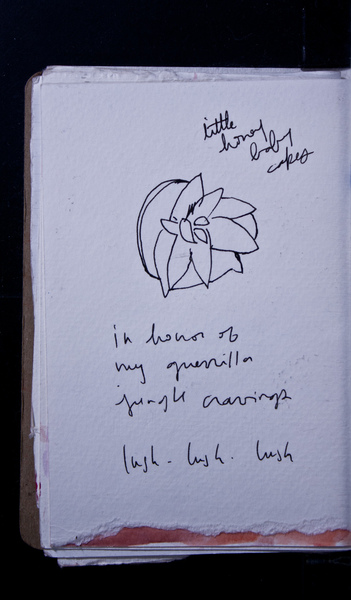 little
honey
baby
cakes
in honor of
my guerrilla
jungle cravings
lush. lush. lush